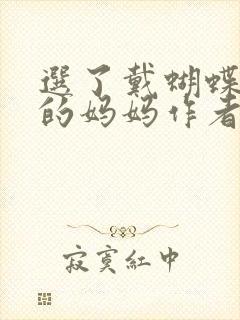 選了戴蝴蝶
的妈妈作者
寂寞紅中